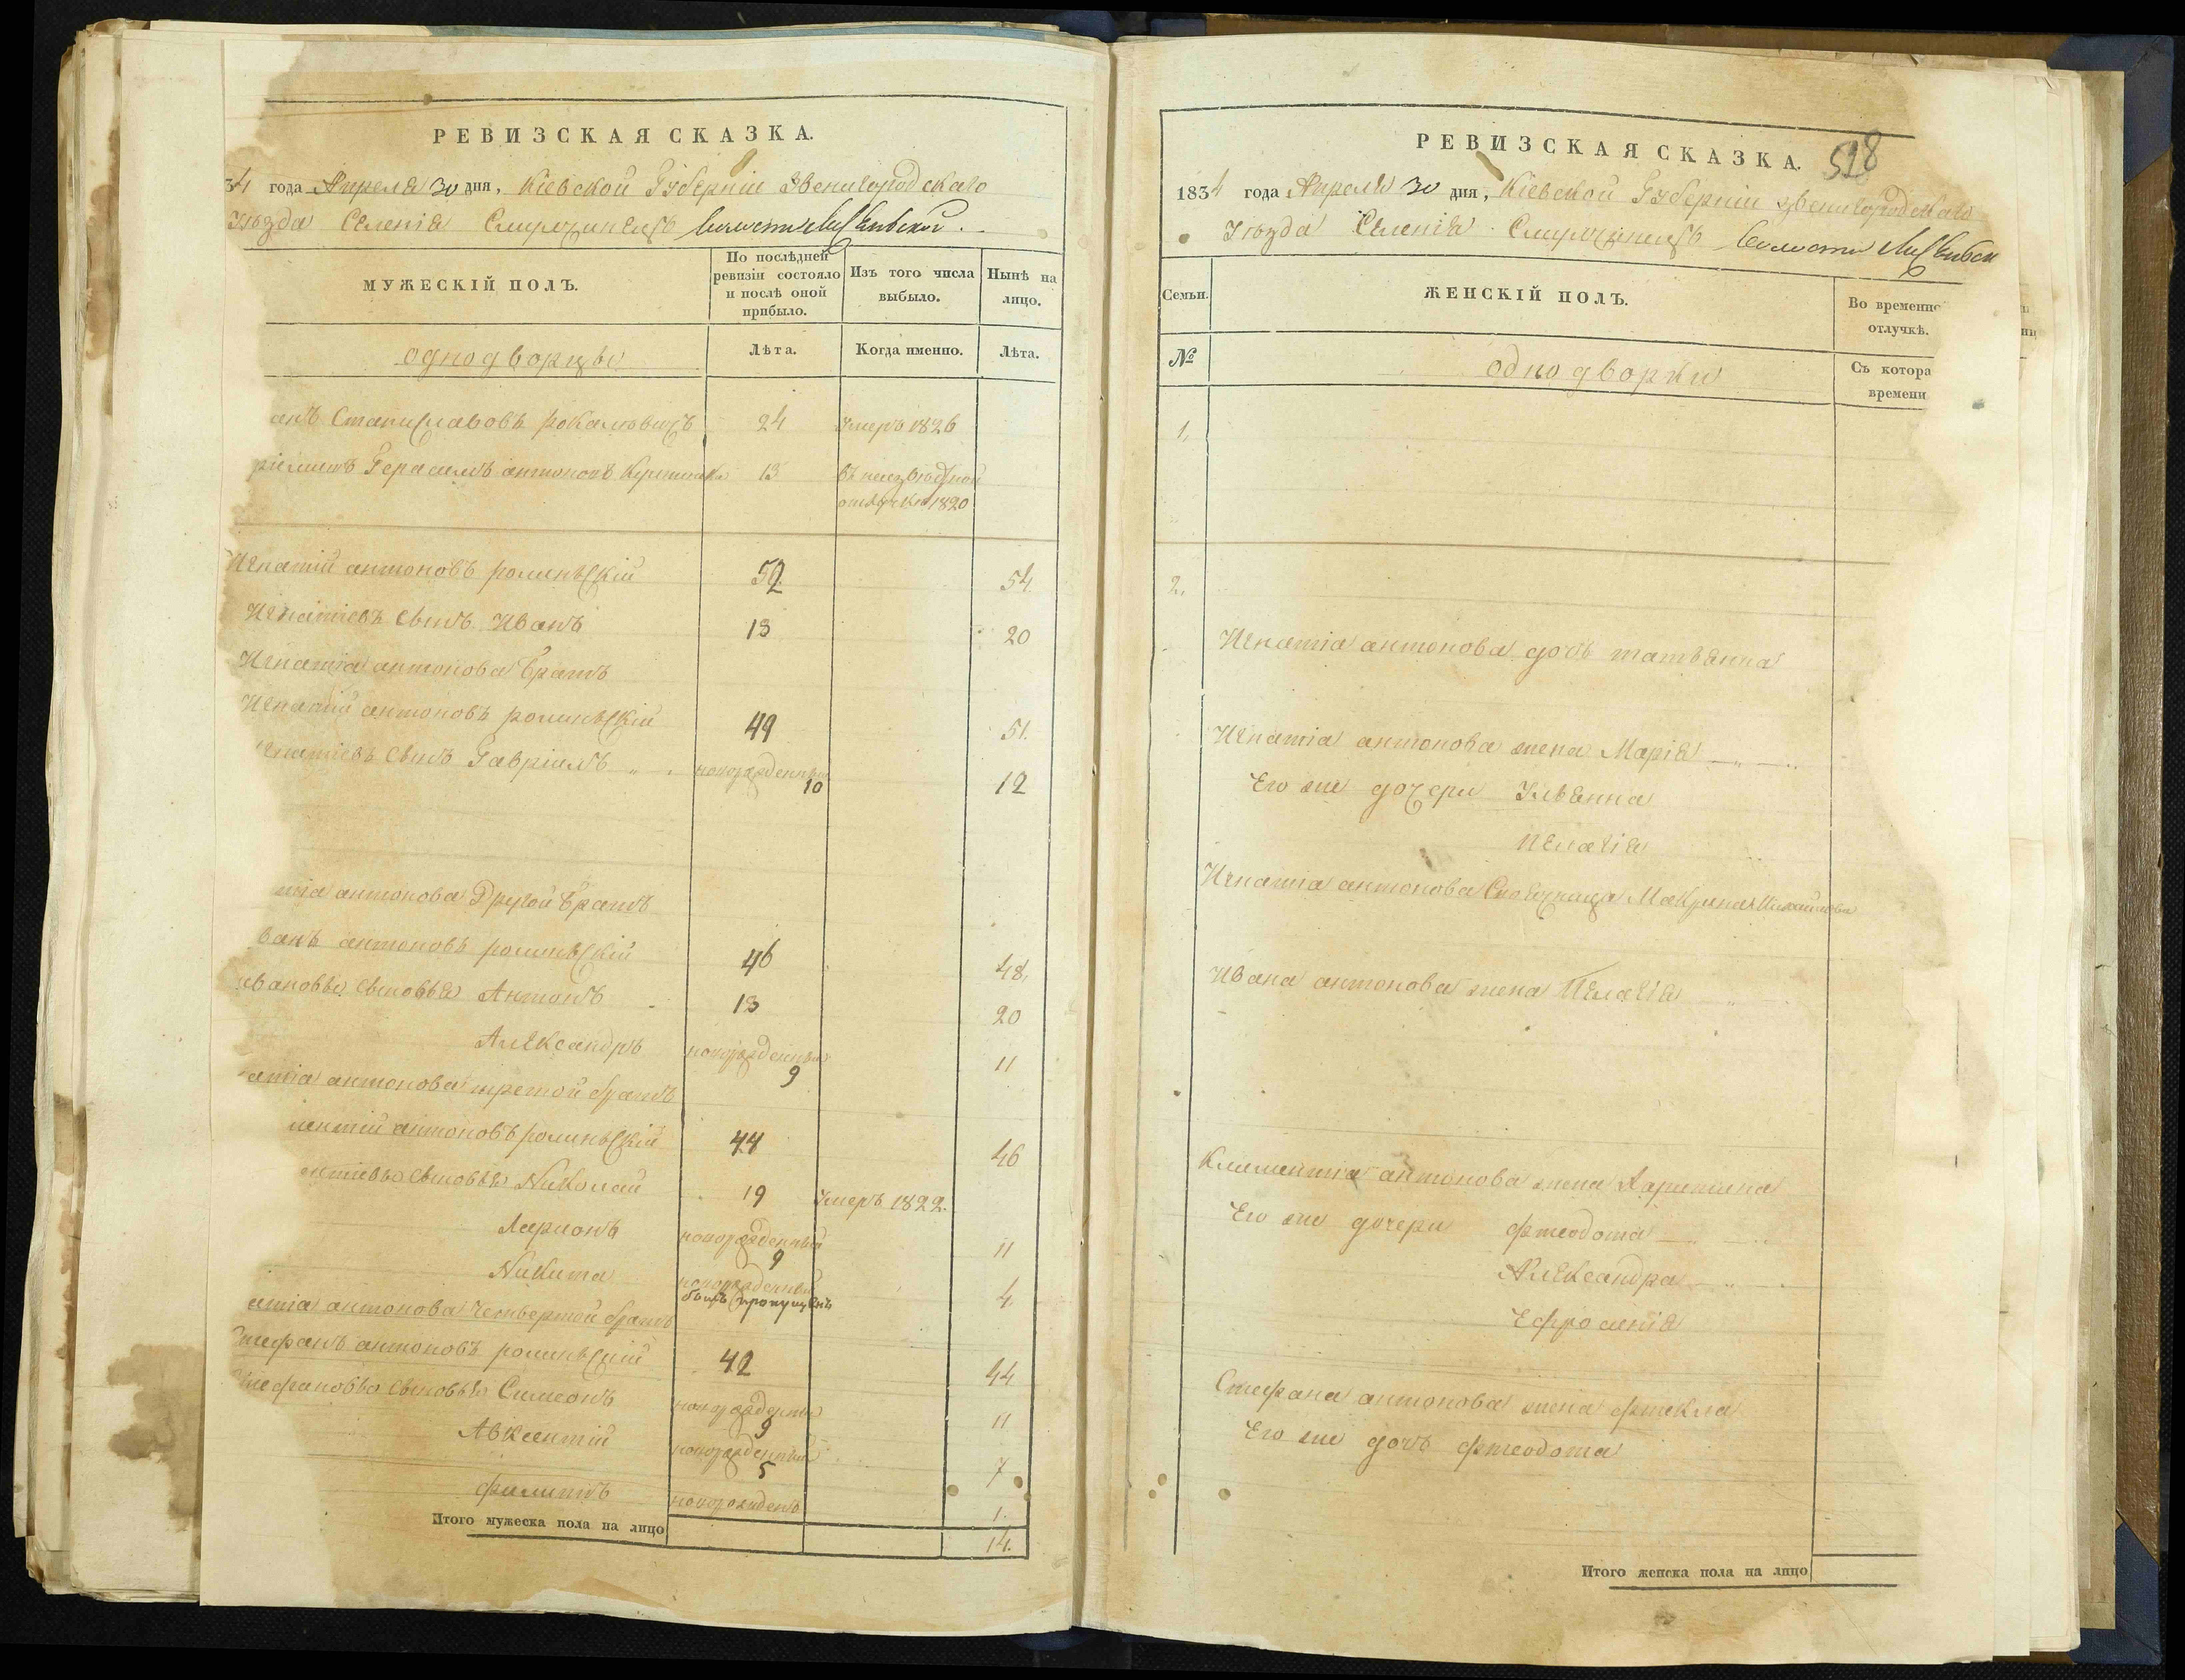 РЕВИЗСКАЯ СКАЗКА.
34 года Апреля 30 дня, Кіевской Губерніи Звенигородскаго
Уѣзда Селенія волости
МУЖЕСКІЙ ПОЛЪ.
По послѣдней ревизіи состояло и послѣ оной прибыло.
Изъ того числа выбыло.
Нынѣ на лицо.
Лѣта.
Когда именно.
Лѣта.
однодворцы
анъ Станиславовъ 24 Умеръ 1826
Герасимъ антоновъ 13 въ неизвѣстной
отлучкѣ 1820
Игнатій антоновъ 52 54.
Игнатіевъ сынъ Иванъ 13 20
Игнатія антонова братъ
Игнатій антоновъ 49 51.
гнатіевъ сынъ Гавріилъ новорожденный 10 12
тія антонова Другой братъ
ванъ антоновъ 46 48.
ивановы сыновья Антонъ 13 20
Александръ новорожденный 9 11
атія антонова третой братъ
ментій антоновъ 44 46
ентіевы сыновья Николай 19 Умеръ 1822.
Ларионъ новорожденный 9 11
Никита новорожденный
былъ пропущенъ 4
атія антонова четвертой братъ
Стефанъ антоновъ 42 44
Стефановы сыновья Симеонъ новорожденный 9 11
Авксентій новорожденный 5 7
филиппъ новорожденъ 1.
Итого мужеска пола на лицо 14.
518
РЕВИЗСКАЯ СКАЗКА.
1834 года Апреля 30 дня, Кіевской Губерніи Звенигородскаго
Уѣзда Селенія волости
Семьи.
ЖЕНСКІЙ ПОЛЪ.
Во временно
отлучкѣ.
№
однодворки
Съ котора
времени
1.
2.
Игнатія антонова дочь татьянна
Игнатія антонова жена Марія
Его же дочери Ульянна
Пелагія
Игнатія антонова Макрина
Ивана антонова жена Пелагія
Климентія антонова жена Харитина
Его же дочери фтеодота
Александра
Ефросинія
Стефана антонова жена фтекла
Его же дочь фтеодота
Итого женска пола на лицо